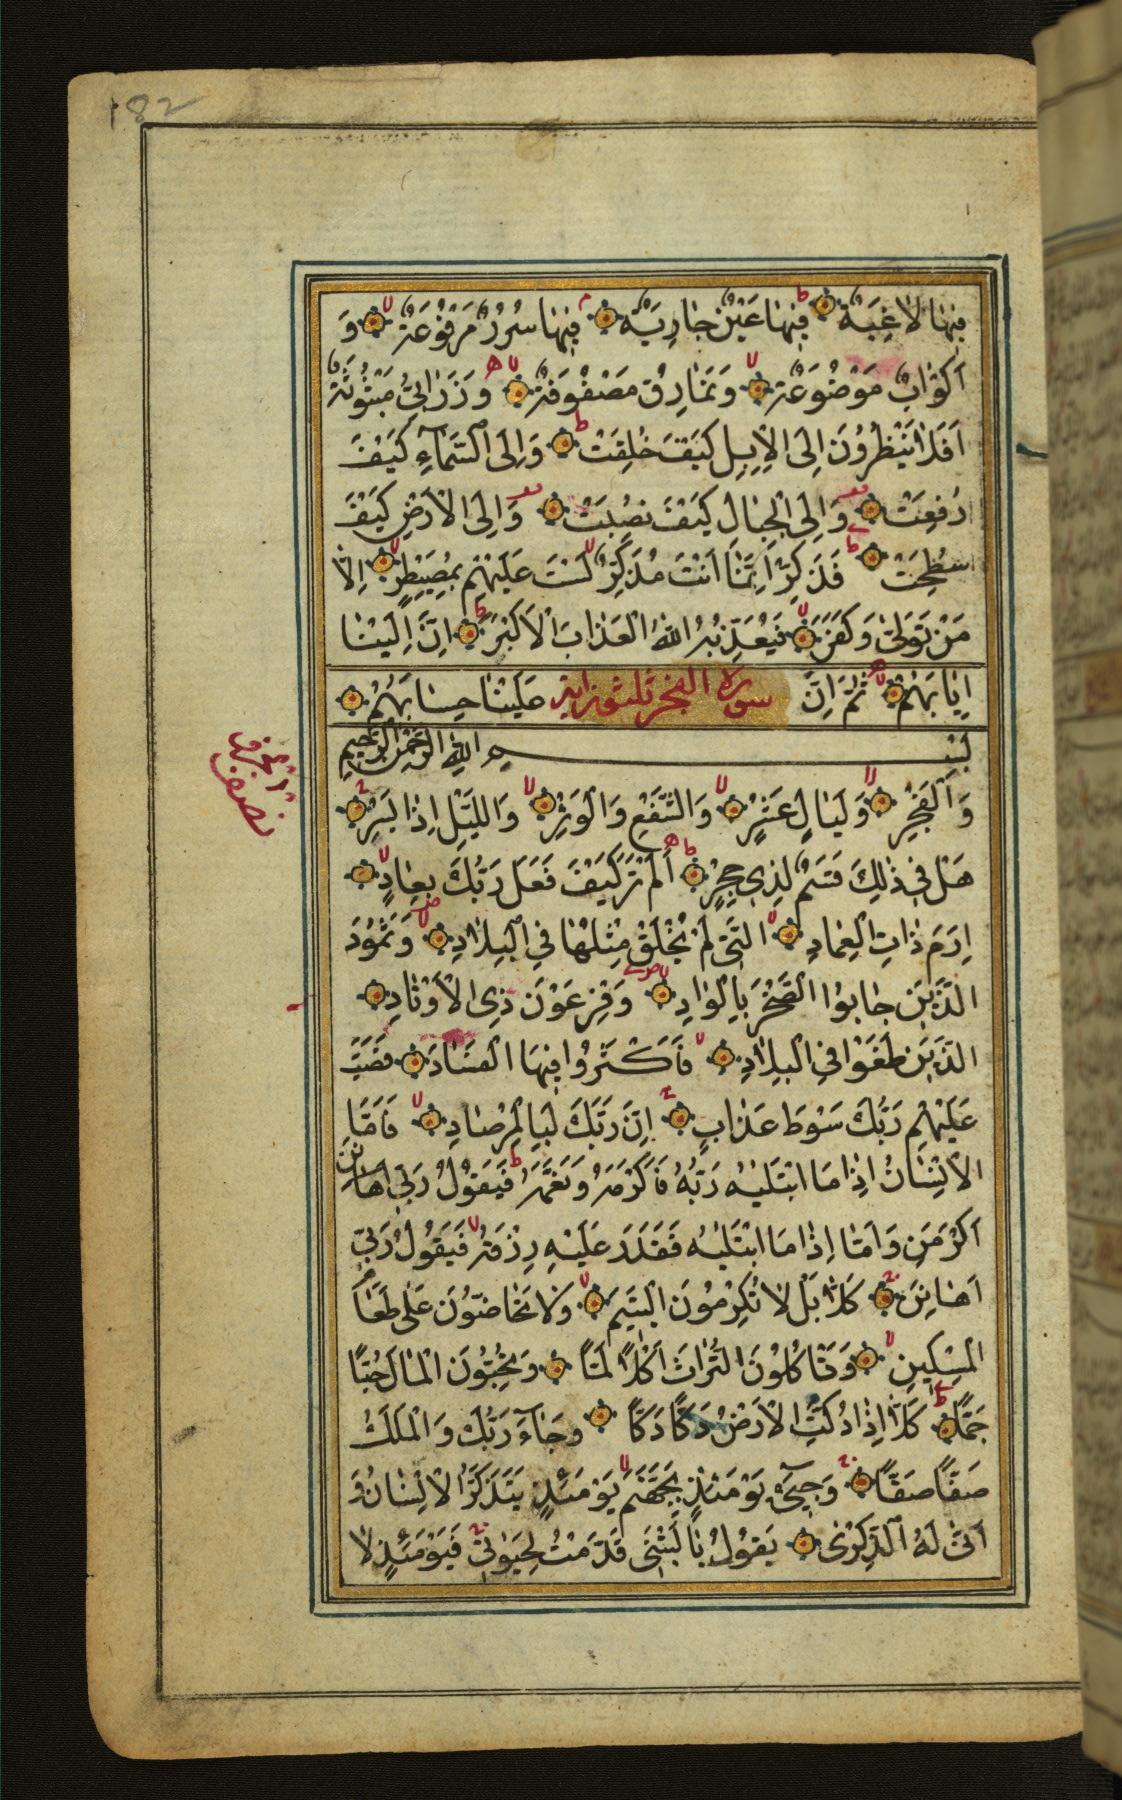 182
فِيهَا لَاغِيَةً فِيهَا عَيْنٌ جَارِيَةٌ فِيهَا سُرُرٌ مَرْفُوعَةٌ وَ
اَكْوَابٌ مَوْضُوعَةٌ وَنَمَارِقُ مَصْفُوفَةٌ وَزَرَابِيُّ مَبْثُوثَةٌ
اَفَلَا يَنْظُرُونَ اِلَى الْاِبِلِ كَيْفَ خُلِقَتْ وَاِلَى السَّمَآءِ كَيْفَ
رُفِعَتْ وَاِلَى الْجِبَالِ كَيْفَ نُصِبَتْ وَاِلَى الْاَرْضِ كَيْفَ
سُطِحَتْ فَذَكِّرْ اِنَّمَا اَنْتَ مُذَكِّرٌ لَسْتَ عَلَيْهِمْ بِمُصَيْطِرٍ اِلَّا
مَنْ تَوَلّٰى وَكَفَرَ فَيُعَذِّبُهُ اللّٰهُ الْعَذَابَ الْاَكْبَرَ اِنَّ اِلَيْنَا
اِيَابَهُمْ ثُمَّ اِنَّ سورة الفجر ثلثون اية عَلَيْنَا حِسَابَهُمْ
بسم الله الرَّحْمٰنِ الرَّحِيمِ
وَالْفَجْرِ وَلَيَالٍ عَشْرٍ وَالشَّفْعِ وَالْوَتْرِ وَاللَّيْلِ اِذَا يَسْرِ
هَلْ فِي ذٰلِكَ قَسَمٌ لِذِي حِجْرٍ اَلَمْ تَرَ كَيْفَ فَعَلَ رَبُّكَ بِعَادٍ
اِرَمَ ذَاتِ الْعِمَادِ الَّتِي لَمْ يُخْلَقْ مِثْلُهَا فِي الْبِلَادِ وَثَمُودَ
الَّذِينَ جَابُوا الصَّخْرَ بِالْوَادِ وَفِرْعَوْنَ ذِي الْاَوْتَادِ
الَّذِينَ طَغَوْا فِي الْبِلَادِ فَاَكْثَرُوا فِيهَا الْفَسَادَ فَصَبَّ
عَلَيْهِمْ رَبُّكَ سَوْطَ عَذَابٍ اِنَّ رَبَّكَ لَبِالْمِرْصَادِ فَاَمَّا
الْاِنْسَانُ اِذَا مَا ابْتَلَيٰهُ رَبُّهُ فَاَكْرَمَهُ وَنَعَّمَهُ فَيَقُولُ رَبِّي اَهَانَنِ
اَكْرَمَنِ وَاَمَّا اِذَا مَا ابْتَلَيٰهُ فَقَدَرَ عَلَيْهِ رِزْقَهُ فَيَقُولُ رَبِّي
اَهَانَنِ كَلَّا بَلْ لَا تُكْرِمُونَ الْيَتِيمَ وَلَا تَحَاضُّونَ عَلٰى طَعَامِ
الْمِسْكِينِ وَتَاْكُلُونَ التُّرَاثَ اَكْلًا لَمًّا وَتُحِبُّونَ الْمَالَ حُبًّا
جَمًّا كَلَّا اِذَا دُكَّتِ الْاَرْضُ دَكًّا دَكًّا وَجَآءَ رَبُّكَ وَالْمَلَكُ
صَفًّا صَفًّا وَجِيءَ يَوْمَئِذٍ بِجَهَنَّمَ يَوْمَئِذٍ يَتَذَكَّرُ الْاِنْسَانُ وَ
اَنّٰى لَهُ الذِّكْرٰى يَقُولُ يَا لَيْتَنِي قَدَّمْتُ لِحَيٰوتِي فَيَوْمَئِذٍ لَا
نصف الحزب